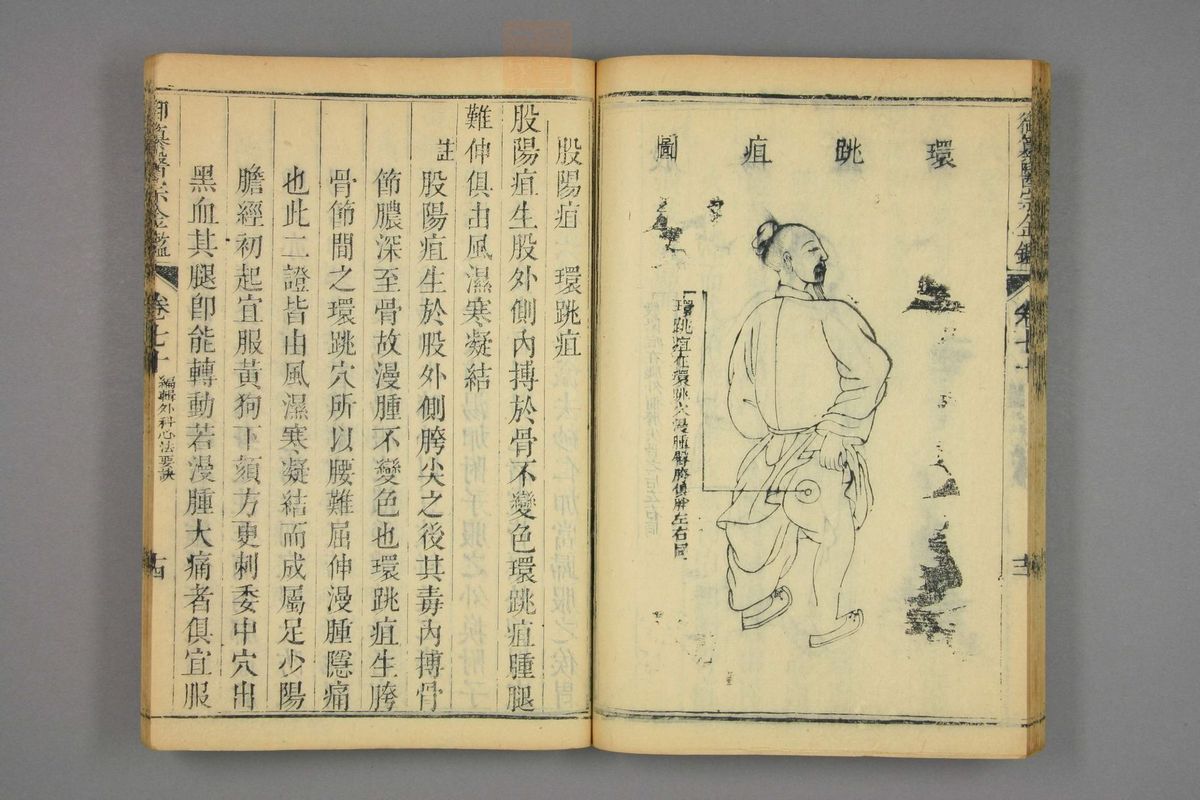 環跳疽圖
環跳疽在環跳穴漫腫臀胯俱腫左右同
御纂醫宗金鑑
股陽疽 環跳疽
股陽疽生股外側內搏於骨不變色環跳疽腫腿
難伸俱由風濕寒凝結
註股陽疽生於股外側胯尖之後其毒內搏骨
節膿深至骨故漫腫不變色也環跳疽生胯
骨節間之環跳穴所以腰難屈伸漫腫隱痛
也此二證皆由風濕寒凝結而成屬足少陽
膽經初起宜服黃狗下頦方更刺委中穴出
黑血其腿即能轉動若漫腫大痛者俱宜服
御纂醫宗金鑑 卷七十 編輯外科心法要訣 十四